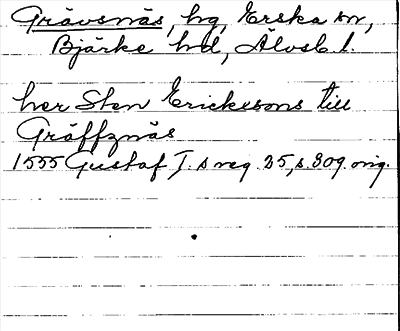 Grävsnäs, hg, Erska sn,
Bjärke hd, Älvsb. l.
her Sten Erickssons till
Gräffznäs
1555 Gustaf I.s reg. 25, s. 309. orig.